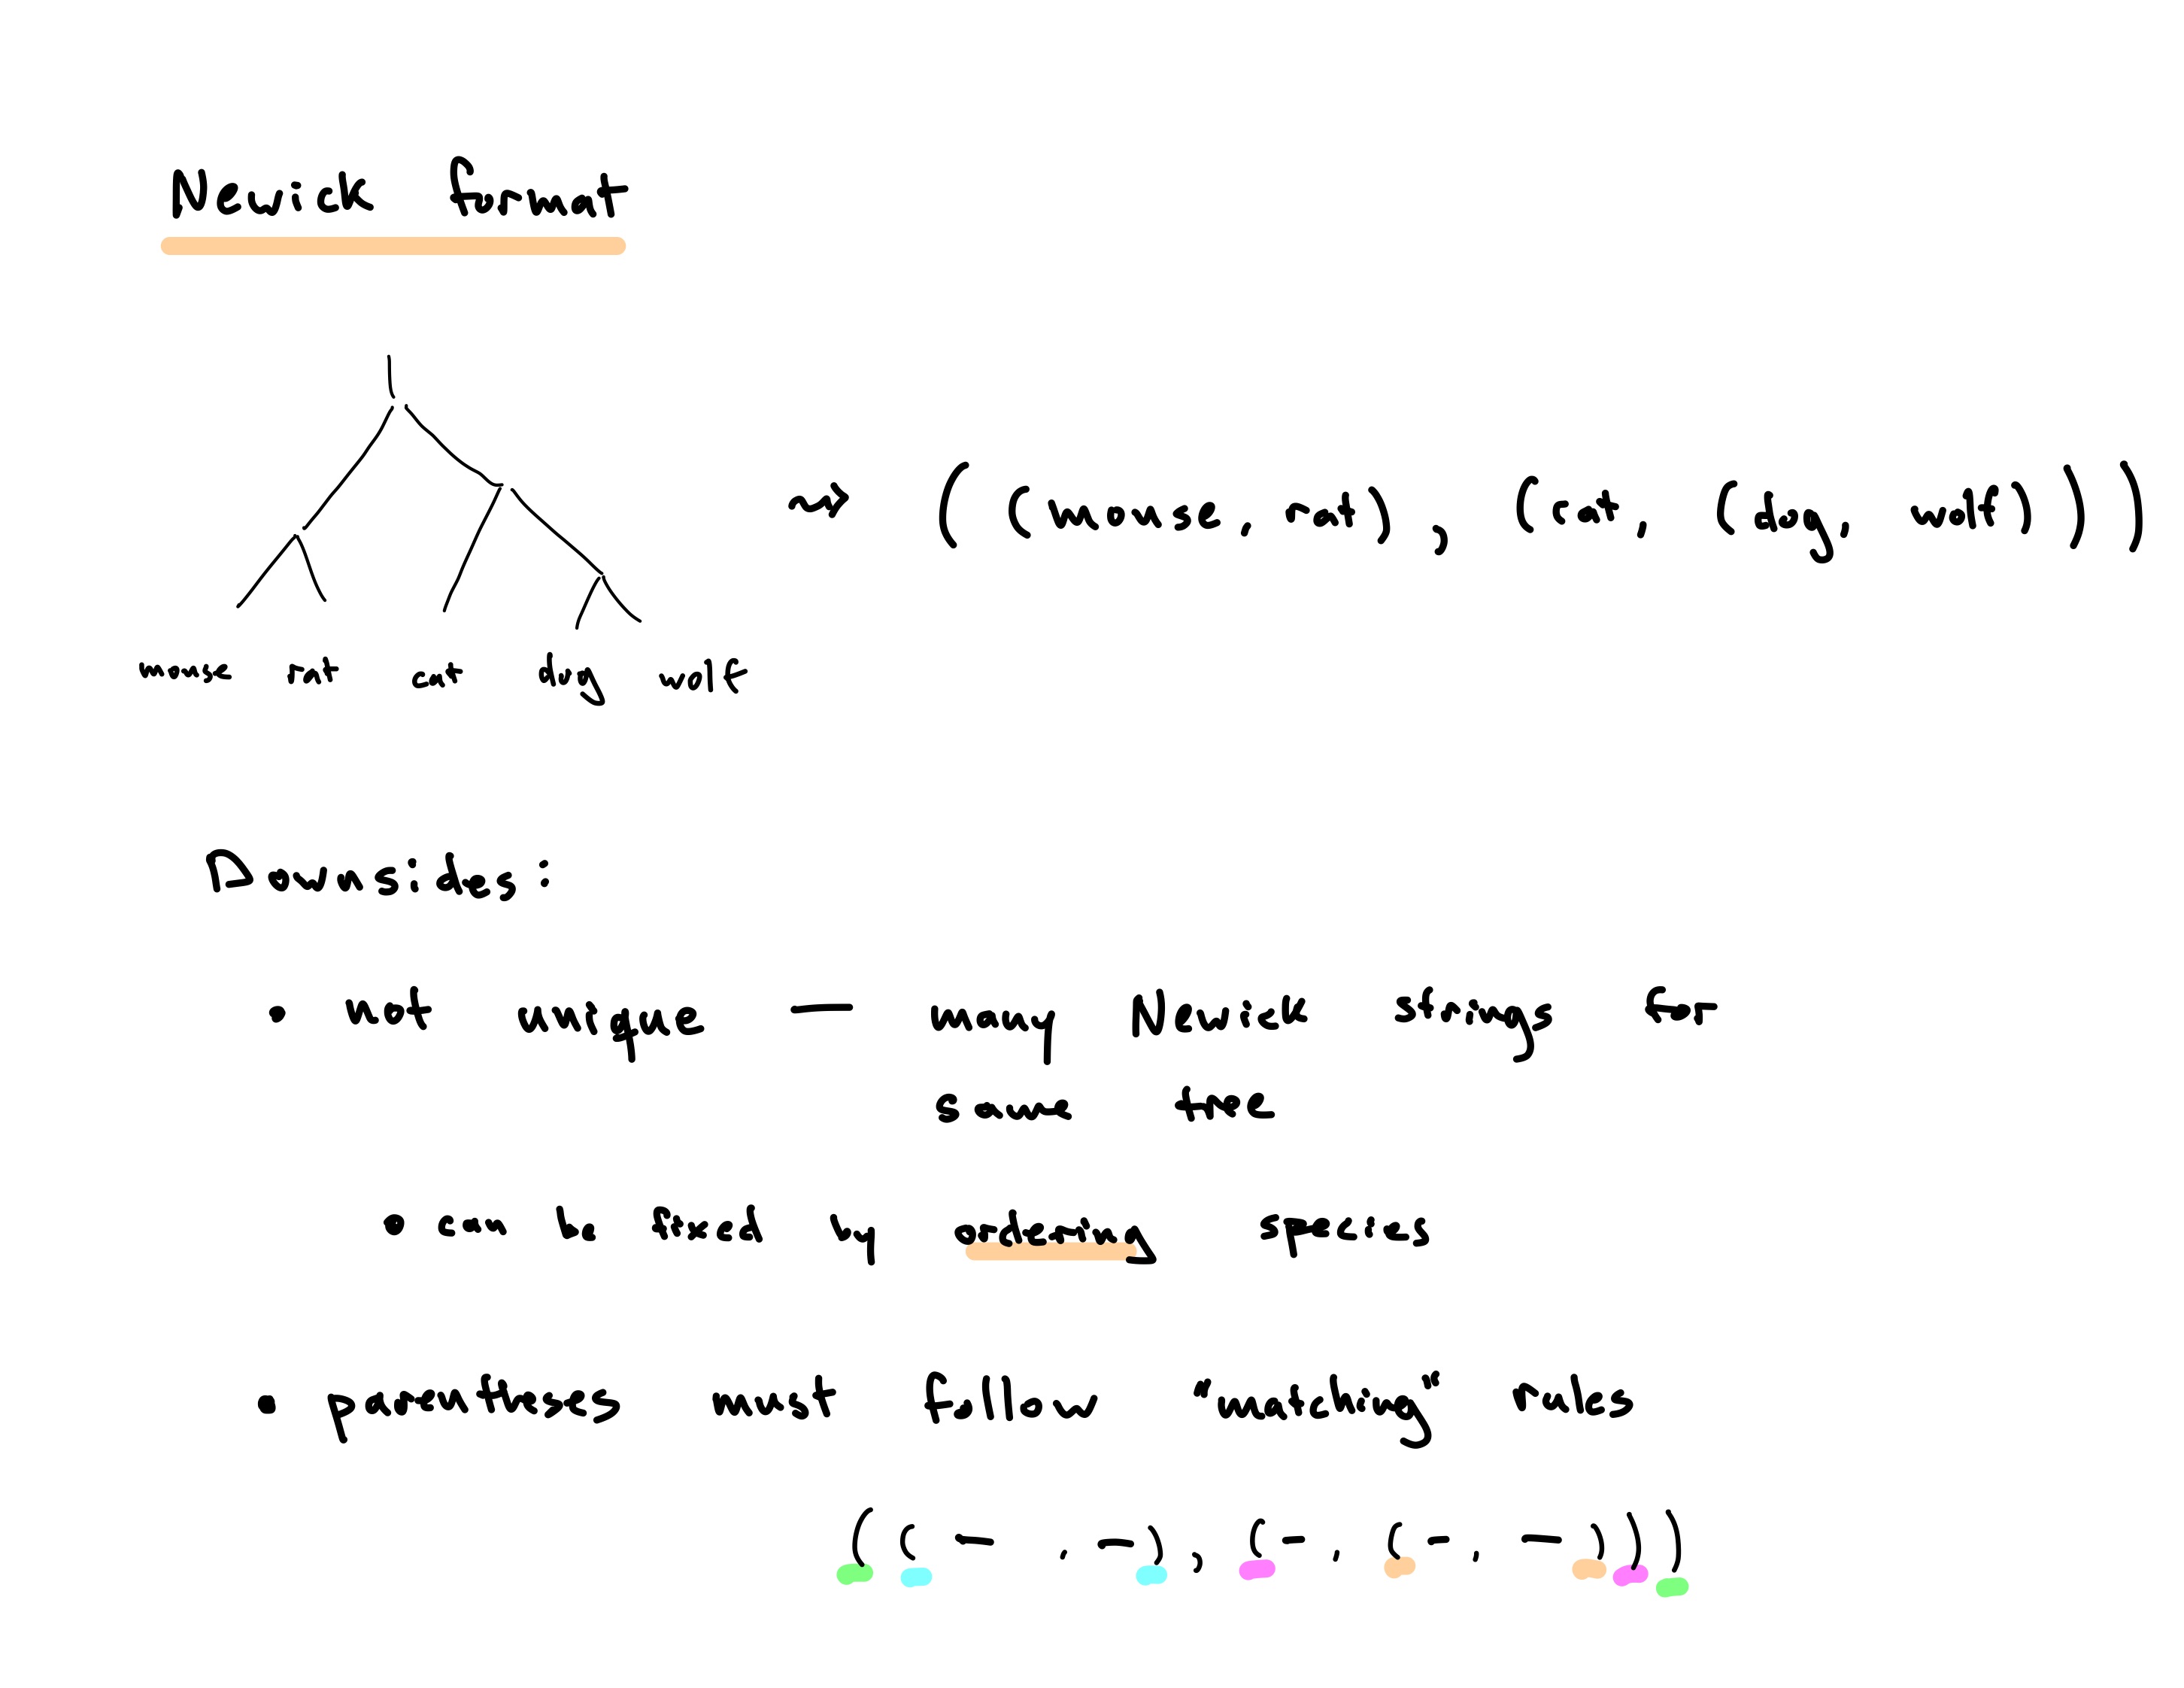 Newick format
⇝ ((mouse, rat), (cat, (dog, wolf)))
mouse rat cat dog wolf
Downsides:
• not unique — many Newick strings for
same tree
• can be fixed by ordering species
• parentheses must follow "matching" rules
((—, —), (—, (—, —)))